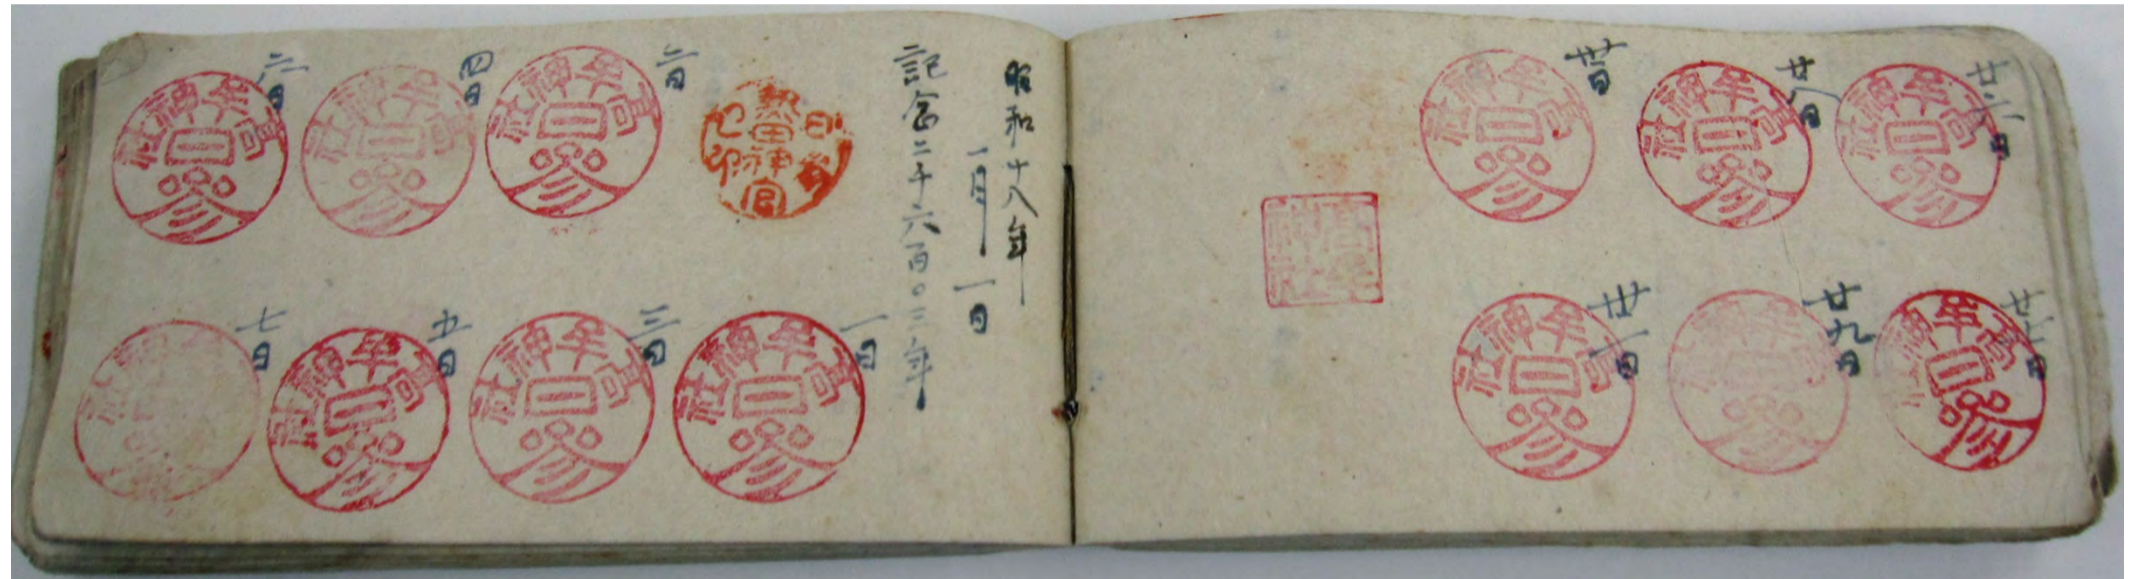 廿六日
高牟神社
日参
廿七日
高牟神社
日参
廿八日
高牟神社
日参
廿九日
高牟神社
日参
卅日
高牟神社
日参
卅一日
高牟神社
日参
高牟神社
昭和十八年
一月一日
記念二千六百〇三年
日参
熱田神宮
一日
高牟神社
日参
二日
高牟神社
日参
三日
高牟神社
日参
四日
高牟神社
日参
五日
高牟神社
日参
六日
高牟神社
日参
七日
高牟神社
日参